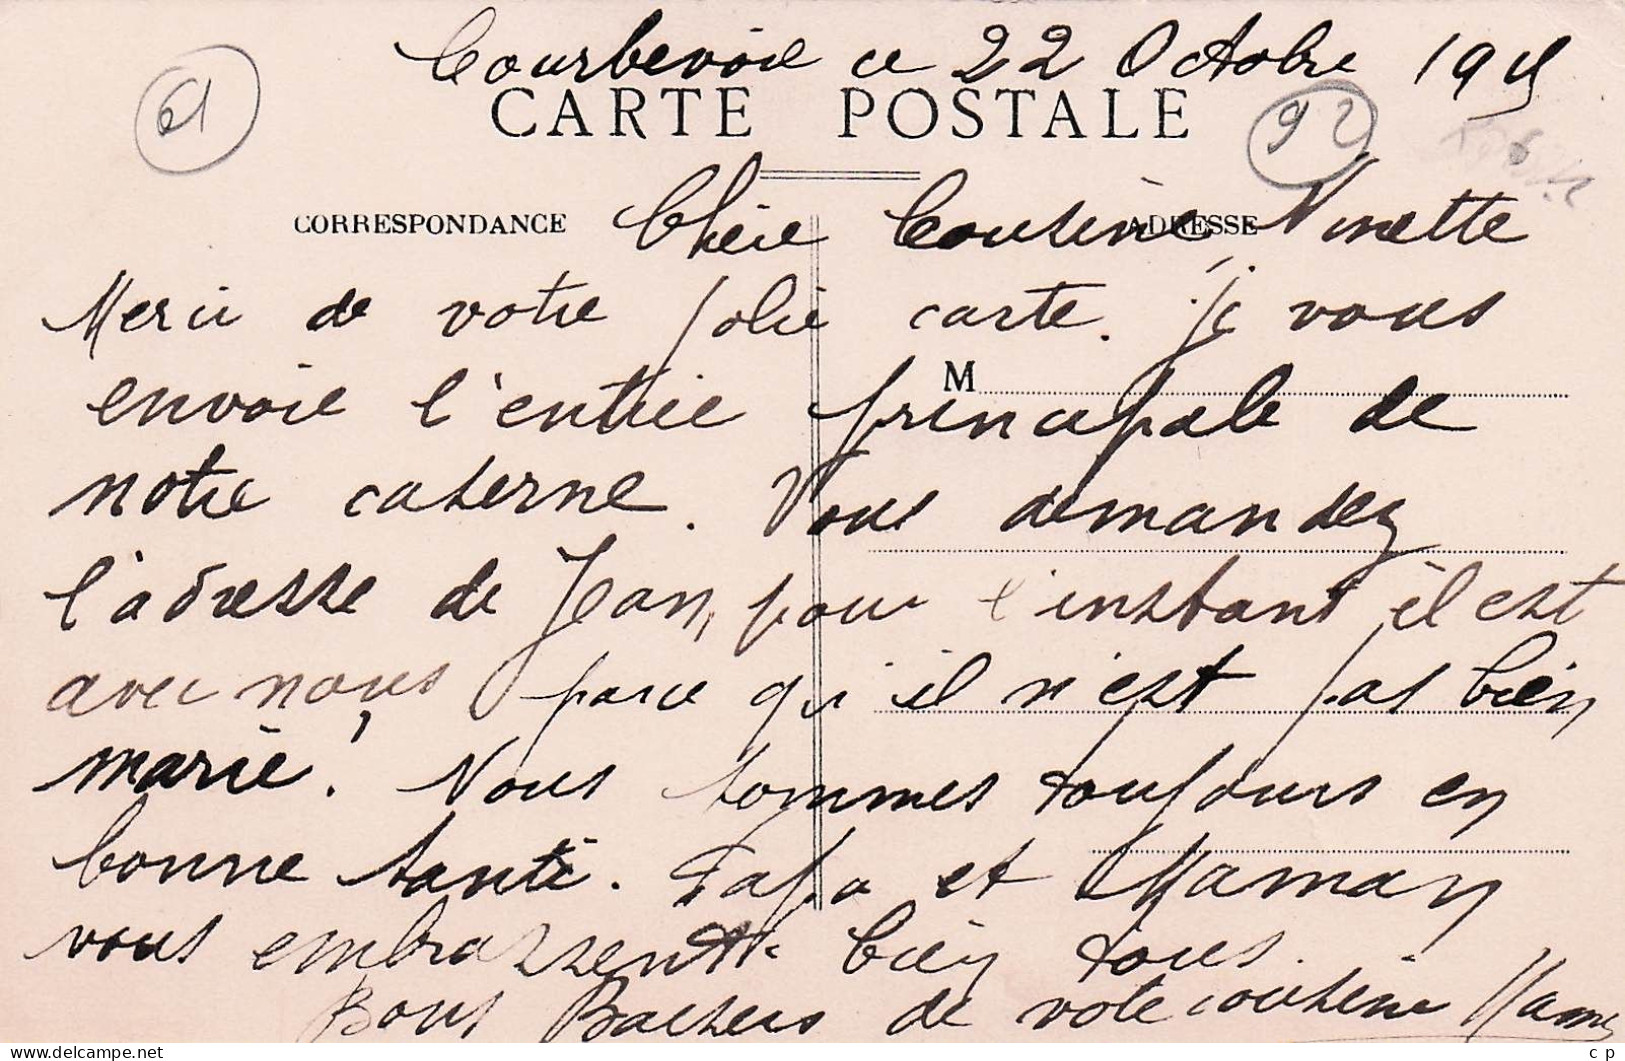 Courbevoie ce 22 Octobre 19
61
CARTE POSTALE
92
CORRESPONDANCE
ADRESSE
Chère Cousine Ninette
Merci de votre jolie carte. je vous
M
envoie l'entrée principale de
notre caserne. Vous demandez
l'adresse de Jean, pour l'instant il est
avec nous parce qu'il n'est pas bien
marié! Nous sommes toujours en
bonne santé. Papa et Maman
vous embrassent bien tous.
Bons Baisers de vote cousine
c p